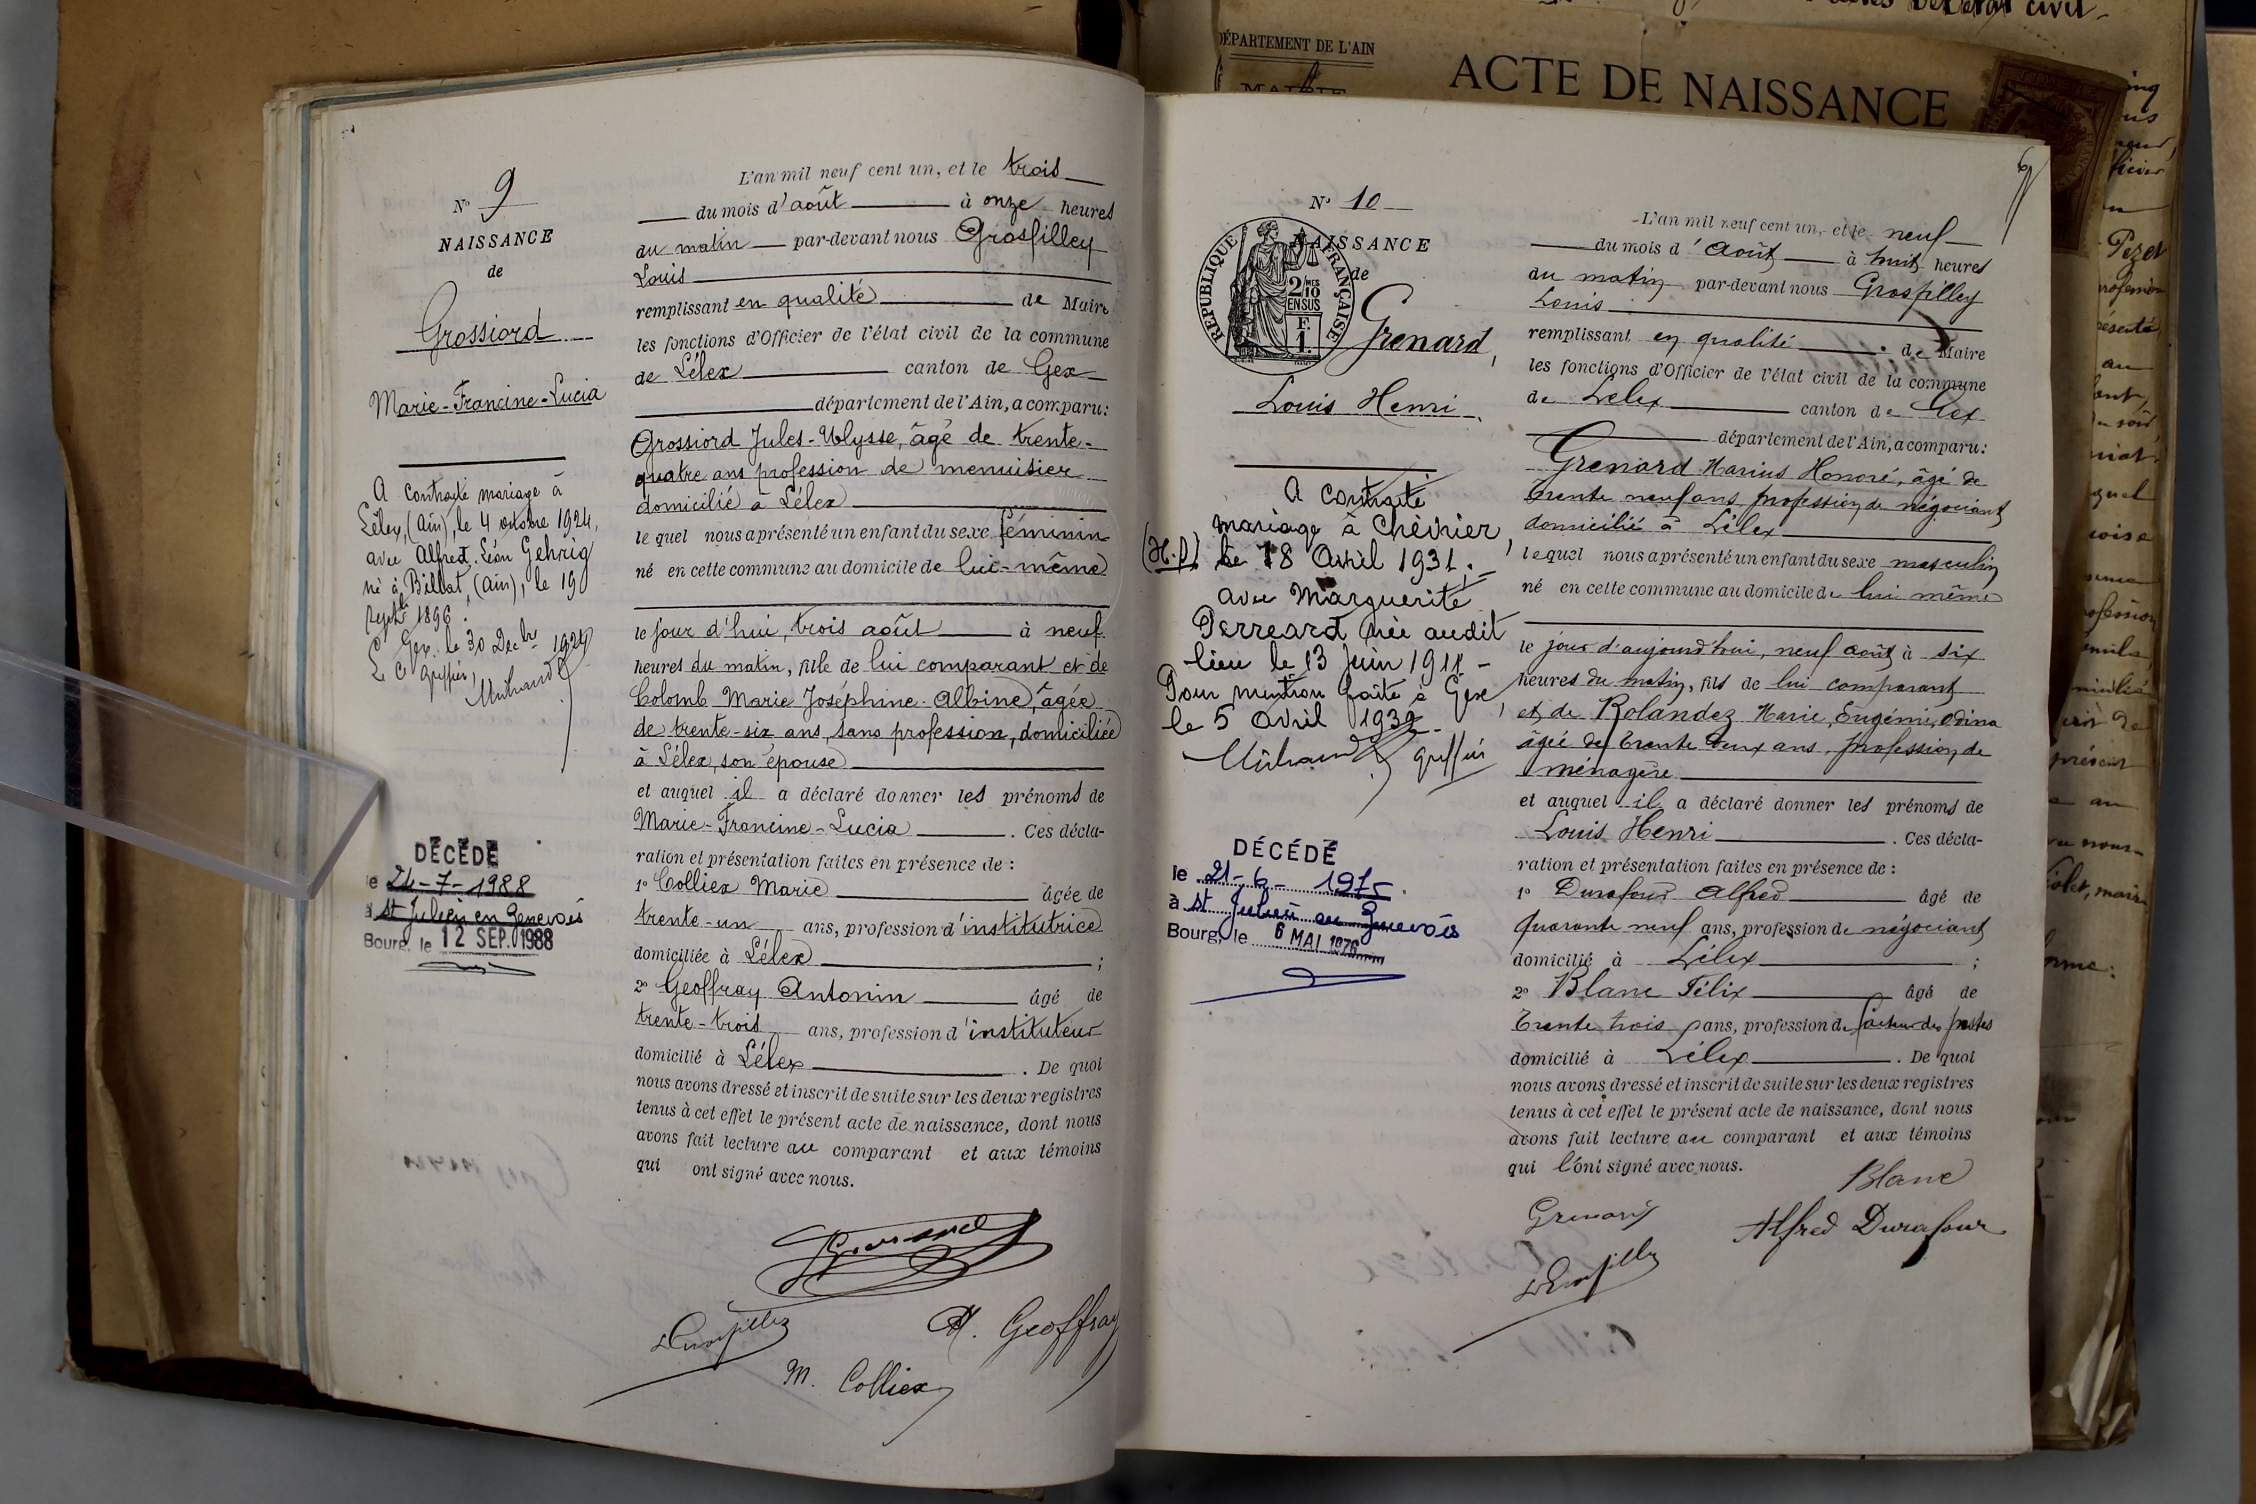 N° 9
NAISSANCE
de
Grossiord
Marie-Francine-Lucia
A contracté mariage à
Lélex, (Ain), le 4 octobre 1924,
avec Alfred-Léon Gehrig
né à Billiat, (Ain), le 19
Septbre 1896.
Gex, le 30 Decbre 1924
Le Greffier,
DÉCÉDÉ
le 24-7-1988
à St Julien en Genevois
Bourg, le 12 SEP. 1988
L'an mil neuf cent un, et le trois
du mois d'août à onze heures
du matin par-devant nous Grosfilley
Louis
remplissant en qualité de Maire
les fonctions d'Officier de l'état civil de la commune
de Lélex canton de Gex
département de l'Ain, a comparu:
Grossiord Jules-Ulysse, âgé de trente-
quatre ans profession de menuisier
domicilié à Lélex
le quel nous a présenté un enfant du sexe féminin
né en cette commune au domicile de lui-même
le jour d'hui, trois août à neuf
heures du matin, fille de lui comparant et de
Colomb Marie Joséphine Albine, âgée
de trente-six ans, sans profession, domiciliée
à Lélex, son épouse
et auquel il a déclaré donner les prénoms de
Marie-Francine-Lucia. Ces décla-
ration et présentation faites en présence de :
1° Colliex Marie âgée de
trente-un ans, profession d'institutrice
domiciliée à Lélex ;
2° Geoffray Antonin âgé de
trente-trois ans, profession d'instituteur
domicilié à Lélex. De quoi
nous avons dressé et inscrit de suite sur les deux registres
tenus à cet effet le présent acte de naissance, dont nous
avons fait lecture au comparant et aux témoins
qui ont signé avec nous.
Grossiord
LGrosfilley
A. Geoffray
M. Colliex
DÉPARTEMENT DE L'AIN
MAIRIE
ACTE DE NAISSANCE
N° 10
NAISSANCE
de
RÉPUBLIQUE FRANÇAISE
2/10MES
EN SUS
F.
1.
Grenard,
Louis Henri
A contracté
mariage à Chevrier,
(H.S.) le 18 Avril 1931,
avec Marguerite
Perreard née audit
lieu le 13 Juin 1911 -
Pour mention faite à Gex,
le 5 Avril 1932
greffier
DÉCÉDÉ
le 21-6-1975
à St Julien en Genevois
Bourg, le 6 MAI 1976
L'an mil neuf cent un, et le neuf
du mois d'Août à huit heures
du matin par-devant nous Grosfilley
Louis
remplissant en qualité de Maire
les fonctions d'Officier de l'état civil de la commune
de Lélex canton de Gex
département de l'Ain, a comparu:
Grenard Marius Honoré, âgé de
trente neuf ans, profession de négociant
domicilié à Lélex
lequel nous a présenté un enfant du sexe masculin
né en cette commune au domicile de lui même
le jour d'aujourd'hui, neuf août à six
heures du matin, fils de lui comparant
et de Rolandez Marie, Eugénie, Odina
âgée de trente deux ans, profession de
ménagère
et auquel il a déclaré donner les prénoms de
Louis Henri. Ces décla-
ration et présentation faites en présence de :
1° Durafour Alfred âgé de
quarante neuf ans, profession de négociant
domicilié à Lélex ;
2° Blanc Félix âgé de
trente trois ans, profession de facteur des postes
domicilié à Lélex. De quoi
nous avons dressé et inscrit de suite sur les deux registres
tenus à cet effet le présent acte de naissance, dont nous
avons fait lecture au comparant et aux témoins
qui l'ont signé avec nous.
Blanc
Grenard
Alfred Durafour
LGrosfilley